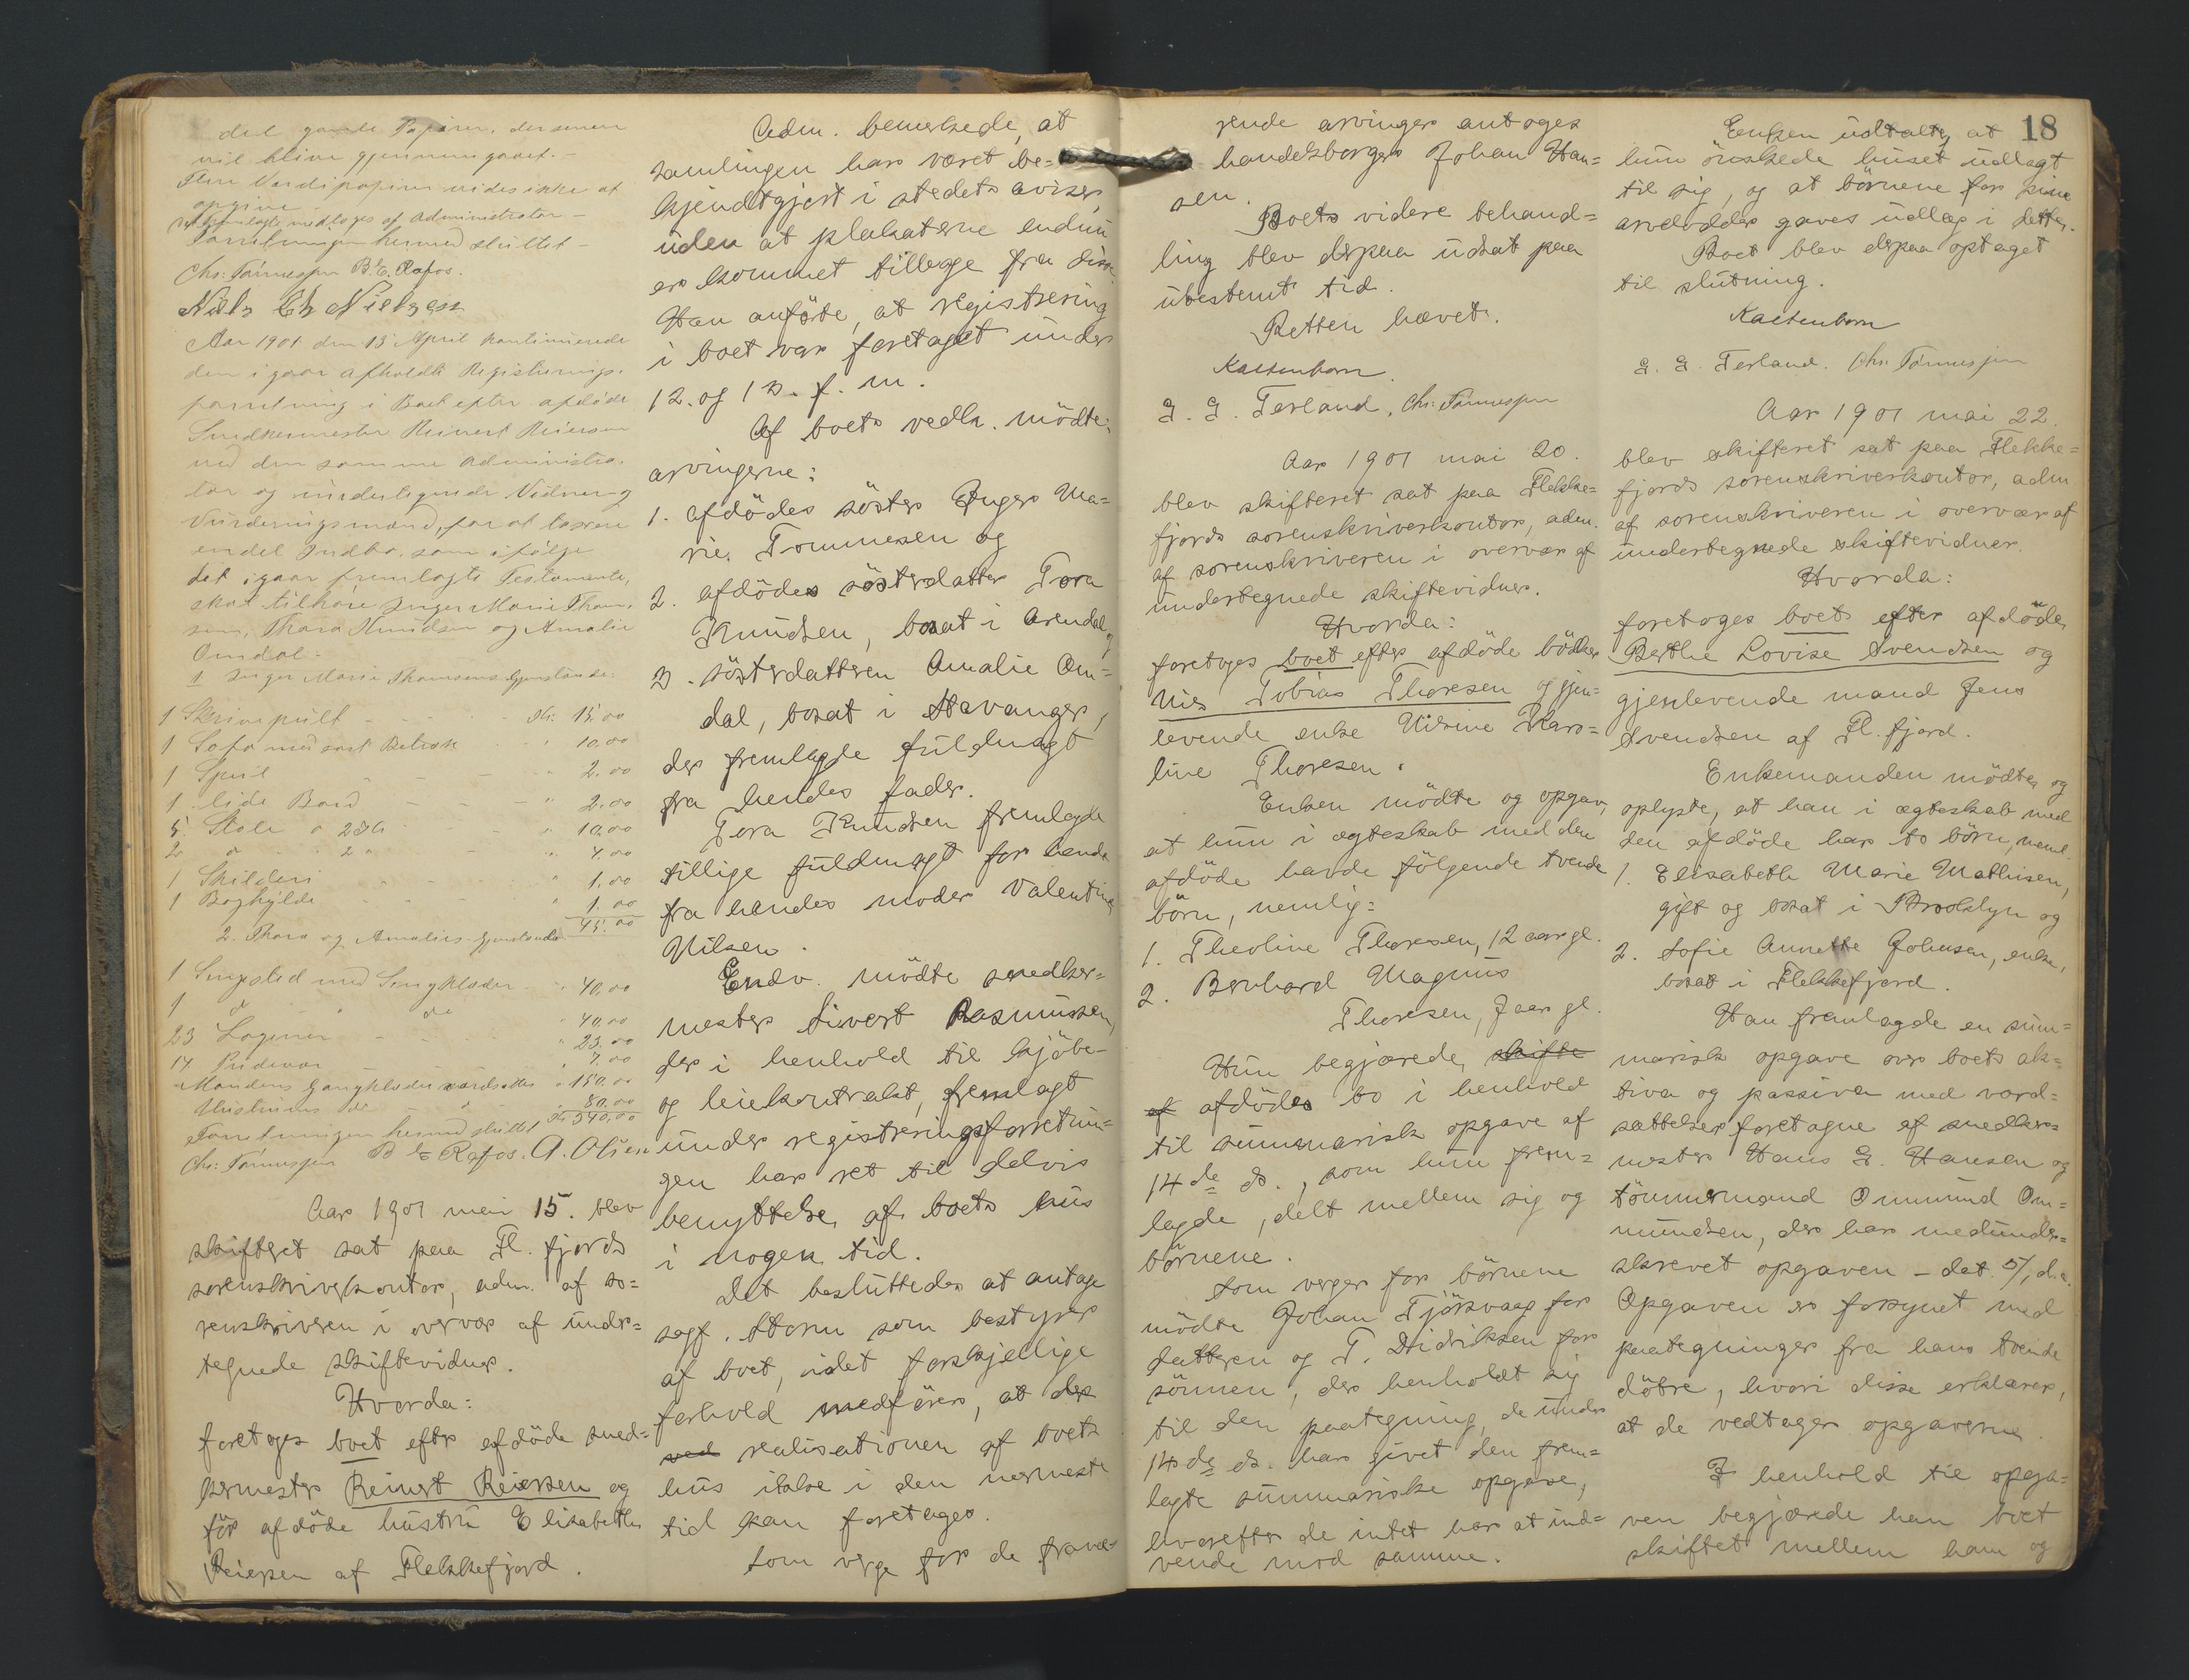 del gamle Papirer, der senere
vil blive gjennemgaaet. –
Flere Værdipapirer vides ikke at
opgive
fremlagte medtages af administrator –
Forretningen hermed sluttet –
Chr. Tönnessen B. E. Rafos.
Niels Chr Nielsen
Aar 1901 den 13 April kontinuerede
den igaar afholdte Registrerings-
forretning i Boet efter afdöde
Snedkermester Reinert Reiersen
ved den samme administra-
tor og undertegnede Vidner og
Vurderingsmænd, for at taxere
endel Indbo, som ifölge
det igaar fremlagte Testamente,
skal tilhøre Inger Marie Thom-
sen, Thora Knudsen og Amalie
Omdal –
1 Inger Marie Thomsens Gjenstande:
1 Skrivepult – Kr. 15.00
1 Sofa med sort Betræk " 10.00
1 Speil – " 2.00
1 lide Bord – " 2.00
5 Stole a 2 Kr " 10.00
2 do " 2 " " 4.00
1 Skilderi " 1.00
1 Boghylde " 1.00
45.00
2. Thora og Amalies Gjenstande
1 Sengested med Sengklæder " 40.00
1 do do " 40.00
23 Lagener " 23.00
14 Pudevar " 7.00
Mandens Gangklæder værdsattes " 150.00
Hustruens do do 80.00
Kr 340.00
Forretningen hermed sluttet
Chr. Tönnessen B E Rafos. A. Olsen
Aar 1901 mai 15. blev
skifteret sat paa Fl. fjords
sorenskriverkontor, adm. af so=
renskriveren i overvær af under=
tegnede skiftevidner.
Hvorda:
foretoges boet efter afdöde sned=
kermester Reinert Reiersen og
för afdöde hustru Elisabeth
Reiersen af Flekkefjord.
Adm. bemerkede, at
samlingen har været be=
kjendtgjort i stedets aviser,
uden at plakaterne endnu
er kommet tillegge fra disse
Han anförte, at registrering
i boet var foretaget under
12. og 13. f. m.
Af boets vedk. mödte
arvingerne:
1. afdödes söster Inger Ma=
rie Tommesen og
2. afdödes sösterdatter Tora
Knudsen, bosat i Arendal, og
3. sösterdatteren Amalie Om=
dal, bosat i Stavanger,
der fremlagde fuldmagt
fra hendes fader.
Tora Knudsen fremlagde
tillige fuldmagt for hende
fra hendes moder Valentine
Nilsen.
Endv. mödte snedker=
mester Sivert Rasmussen,
der i henhold til kjöbe-
og leiekontrakt, fremlagt
under registreringsforretnin=
gen har ret til delvis
benyttelse af boets hus
i nogen tid.
Det besluttedes at antage
sagf. Storm som bestyrer
af boet, idet forskjellige
forhold medförer, at der
ved realisationen af boets
hus ikke i den nermeste
tid kan foretages.
Som verge for de fravæ=
rende arvinger antoges
handelsborger Johan Han=
sen.
Boets videre behand=
ling blev derpaa udsat paa
ubestemt tid.
Retten hævet.
Kaltenborn
G. G. Tesland. Chr. Tönnessen
Aar 1901 mai 20.
blev skifteret sat paa Flekke=
fjords sorenskriverkontor, adm.
af sorenskriveren i overvær af
undertegnede skiftevidner.
Hvorda:
foretoges boet efter afdöde bödker
Nies Tobias Thoresen og gjen=
levende enke Nilsine Karo=
line Thoresen.
Enken mödte og opgav,
at hun i ægteskab med den
afdöde havde fölgende tvende
börn, nemlig:
1. Theoline Thoresen, 12 aar gl.
2. Bernhard Magnus
Thoresen, 7 aar gl.
Hun begjærede skifte
af afdödes bo i henhold
til summarisk opgave af
14de ds., som hun frem=
lagde, delt mellem sig og
börnene.
Som verger for börnene
mödte Johan Tjörsvaag for
datteren og T. Didriksen for
sönnen, der henholdt sig
til den paategning, de under
14de ds. har givet den frem=
lagte summariske opgave,
hvorefter de intet har at ind=
vende mod samme.
18
Enken udtalte, at
hun önskede huset udlagt
til sig, og at börnene for sine
arvelodder gaves udlæg i dette.
Boet blev derpaa optaget
til slutning.
Kaltenborn
G. G. Tesland. Chr. Tönnessen
Aar 1901 mai 22.
blev skifteret sat paa Flekke=
fjords sorenskriverkontor, adm
af sorenskriveren i overvær af
undertegnede skiftevidner.
Hvorda:
foretoges boet efter afdöde
Berthe Lovise Svendsen og
gjenlevende mand Jens
Svendsen af Fl. fjord.
Enkemanden mödte og
oplyste, at han i ægteskab med
den afdöde har to börn, neml.
1. Elisabeth Marie Mathisen,
gift og bosat i Brooklyn og
2. Sofie Annette Johnsen, enke,
bosat i Flekkefjord.
Han fremlagde en sum=
marisk opgave over boets ak=
tiva og passiva med værd=
sættelser foretagne af snedker=
mester Hans G. Hansen og
tömmermand Ommund Om=
mundsen, der har medunder=
skrevet opgaven – dat. 5/, d.a.
Opgaven er forsynet med
paategninger fra hans tvende
döbre, hvori disse erklærer,
at de vedtager opgaverne.
I henhold til opga=
ven begjærede han boet
skiftet mellem ham og